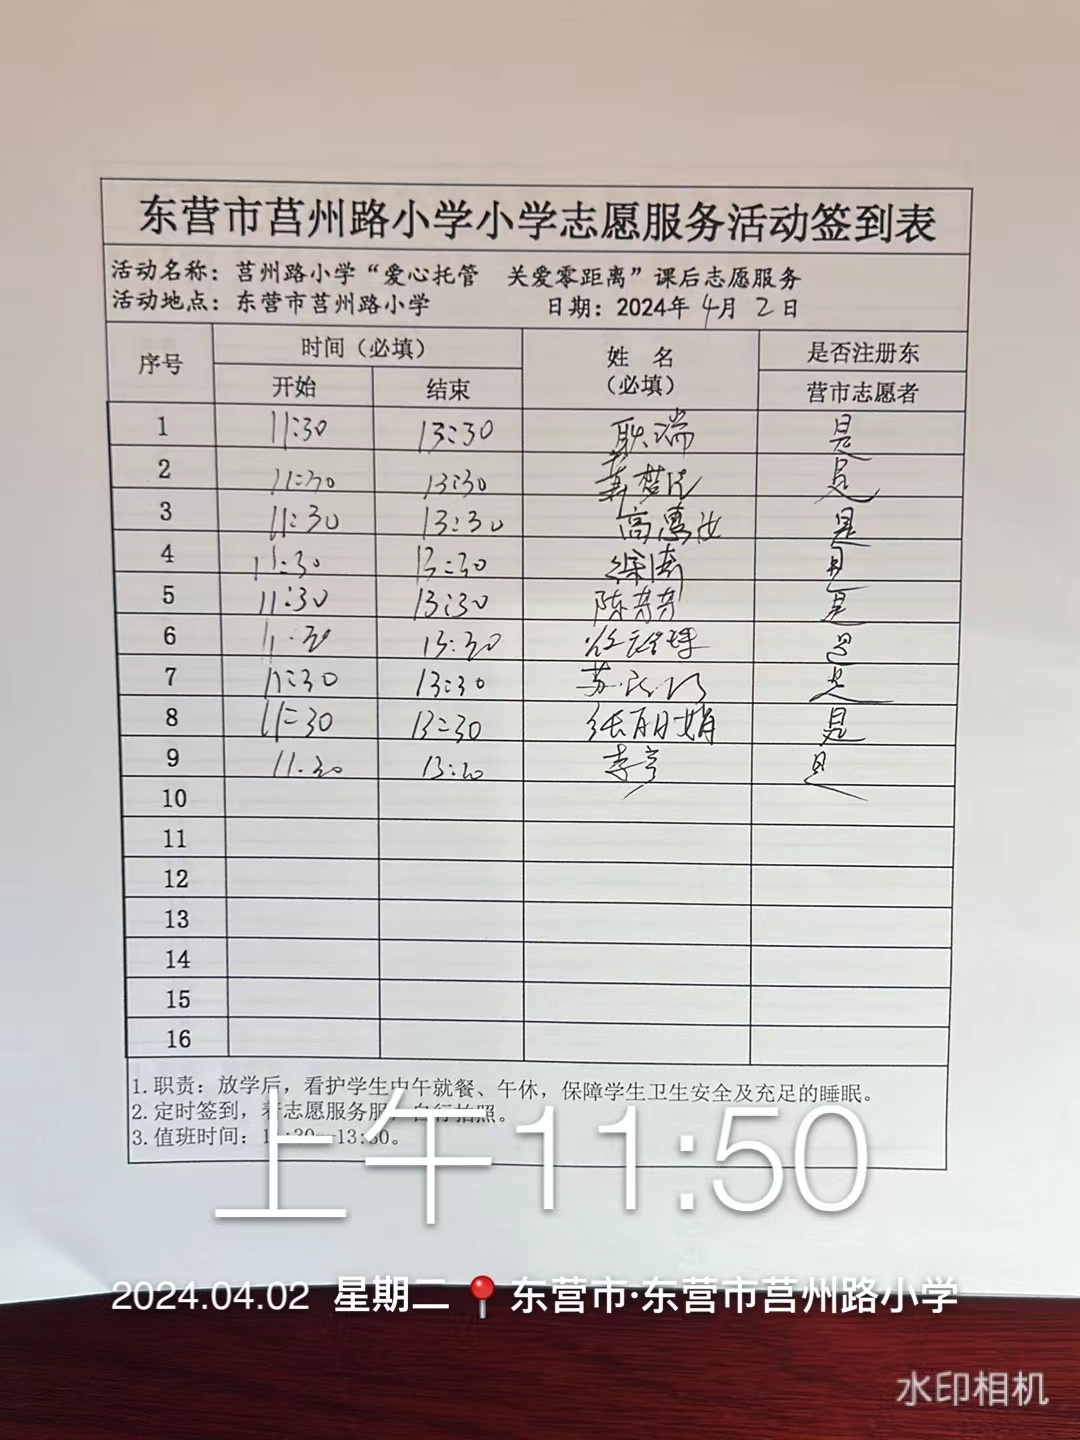 东营市莒州路小学小学志愿服务活动签到表
活动名称：莒州路小学“爱心托管 关爱零距离”课后志愿服务
活动地点：东营市莒州路小学 日期：2024年4月2日
序号 时间（必填） 姓名（必填） 是否注册东营市志愿者
开始 结束
1 11:30 13:30 耿瑞 是
2 11:30 13:30 是
3 11:30 13:30 高惠汝 是
4 11:30 13:30 徐涛 是
5 11:30 13:30 陈芳芳 是
6 11:30 13:30 是
7 11:30 13:30 是
8 11:30 13:30 张丽娟 是
9 11:30 李亨 是
10
11
12
13
14
15
16
1.职责：放学后，看护学生中午就餐、午休，保障学生卫生安全及充足的睡眠。
2.定时签到，着志愿服务服，自行拍照。
3.值班时间：11:30—13:30。
上午11:50
2024.04.02 星期二 东营市·东营市莒州路小学
水印相机